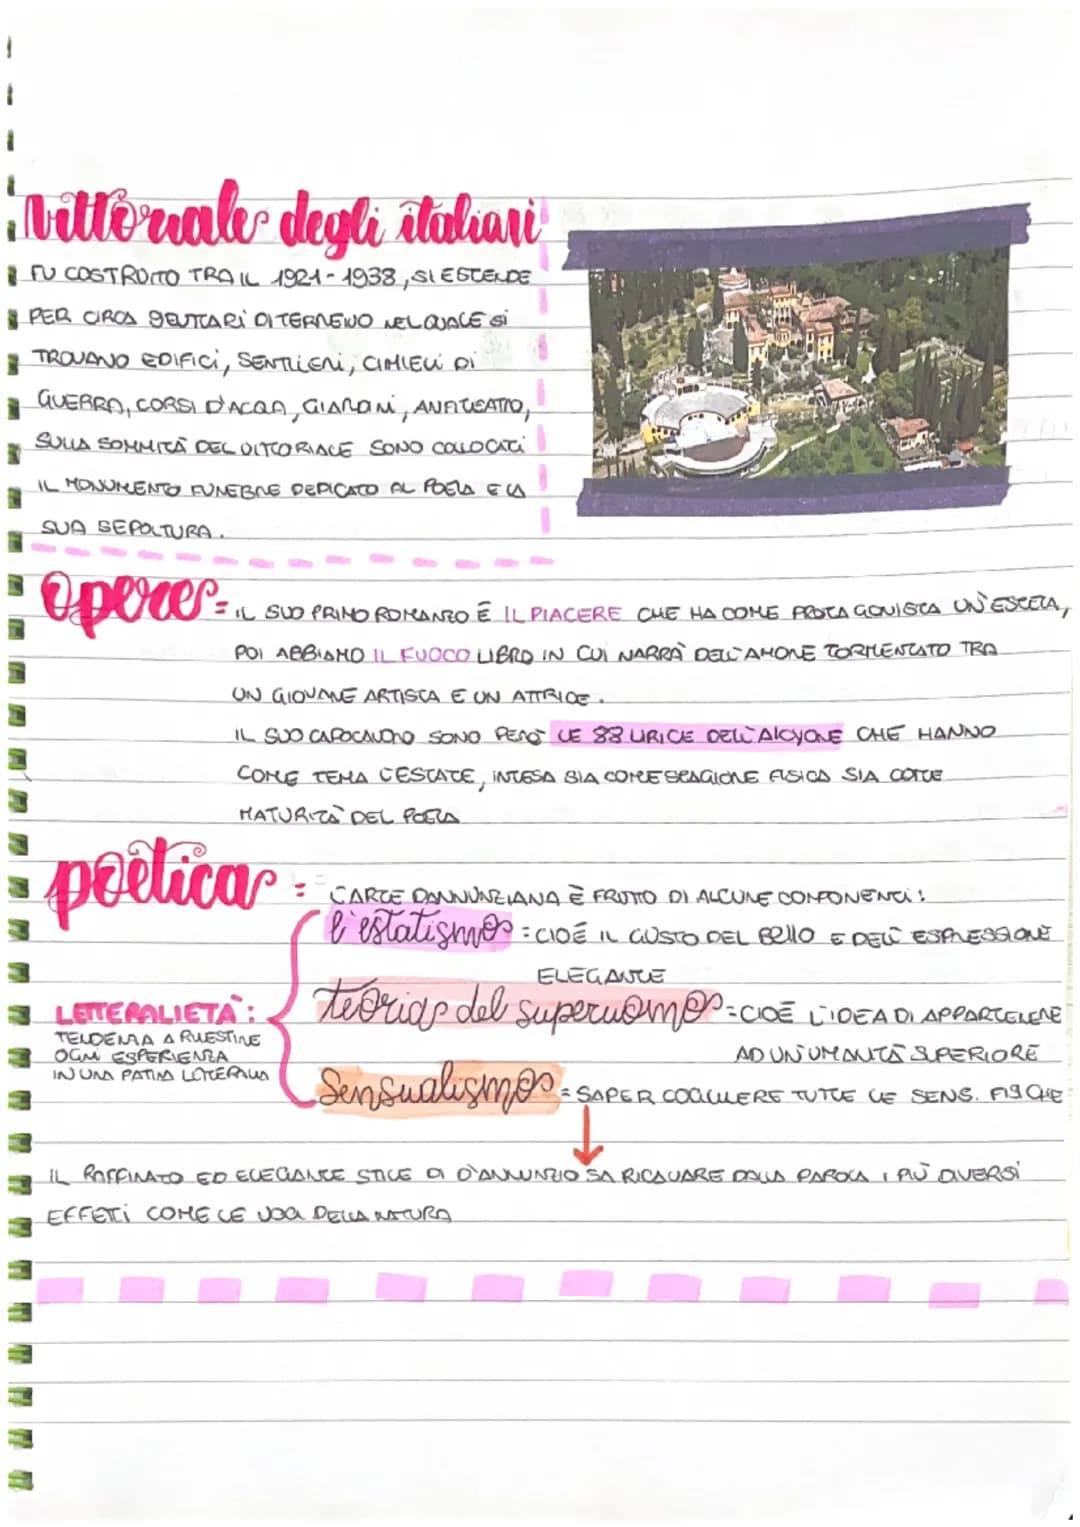 Vittoriale degli italiani
FU COSTRUITO TRA IL 1921-1938, SI ESTENDE
PER CIRCA 9 EUTTARI DI TERRENO NEL QUALE SI
TROVANO EDIFICI, SENTIERI, CIMIELI DI
GUERRA, CORSI D'ACQUA, GIARDINI, ANFITEATRO,
SULLA SOMMITÀ DEL VITTORIALE SONO COLLOCATI
IL MONUMENTO FUNEBRE DEDICATO AL POETA E LA
SUA SEPOLTURA.
Opere = IL SUO PRIMO ROMANZO È IL PIACERE CHE HA COME PROTAGONISTA UN'ESTETA,
POI ABBIAMO IL FUOCO LIBRO IN CUI NARRÀ DELL'AMORE TORMENTATO TRA
UN GIOVANE ARTISTA E UN ATTRICE.
IL SUO CAPOLAVORO SONO PERÒ LE 88 LIRICE DELL'ALCYONE CHE HANNO
COME TEMA L'ESTATE, INTESA SIA COME STAGIONE FISICA SIA COME
MATURITÀ DEL POETA
poetica = L'ARTE DANNUNZIANA È FRUTTO DI ALCUNE COMPONENTI:
l'estatismo = CIOÈ IL GUSTO DEL BELLO E DELL' ESPRESSIONE
ELEGANTE
teoria del superuomo = CIOÈ L'IDEA DI APPARTENERE
AD UN'UMANITÀ SUPERIORE
LETTERALIETÀ:
TENDENZA A RIVESTIRE
OGNI ESPERIENZA
IN UNA PATINA LETTERARIA
Sensualismo = SAPER COGLIERE TUTTE LE SENS. FISICHE
IL RAFFINATO ED ELEGANTE STILE DI D'ANNUNZIO SA RICAVARE DALLA PAROLA I PIÙ DIVERSI
EFFETTI COME LE VOCI DELLA NATURA